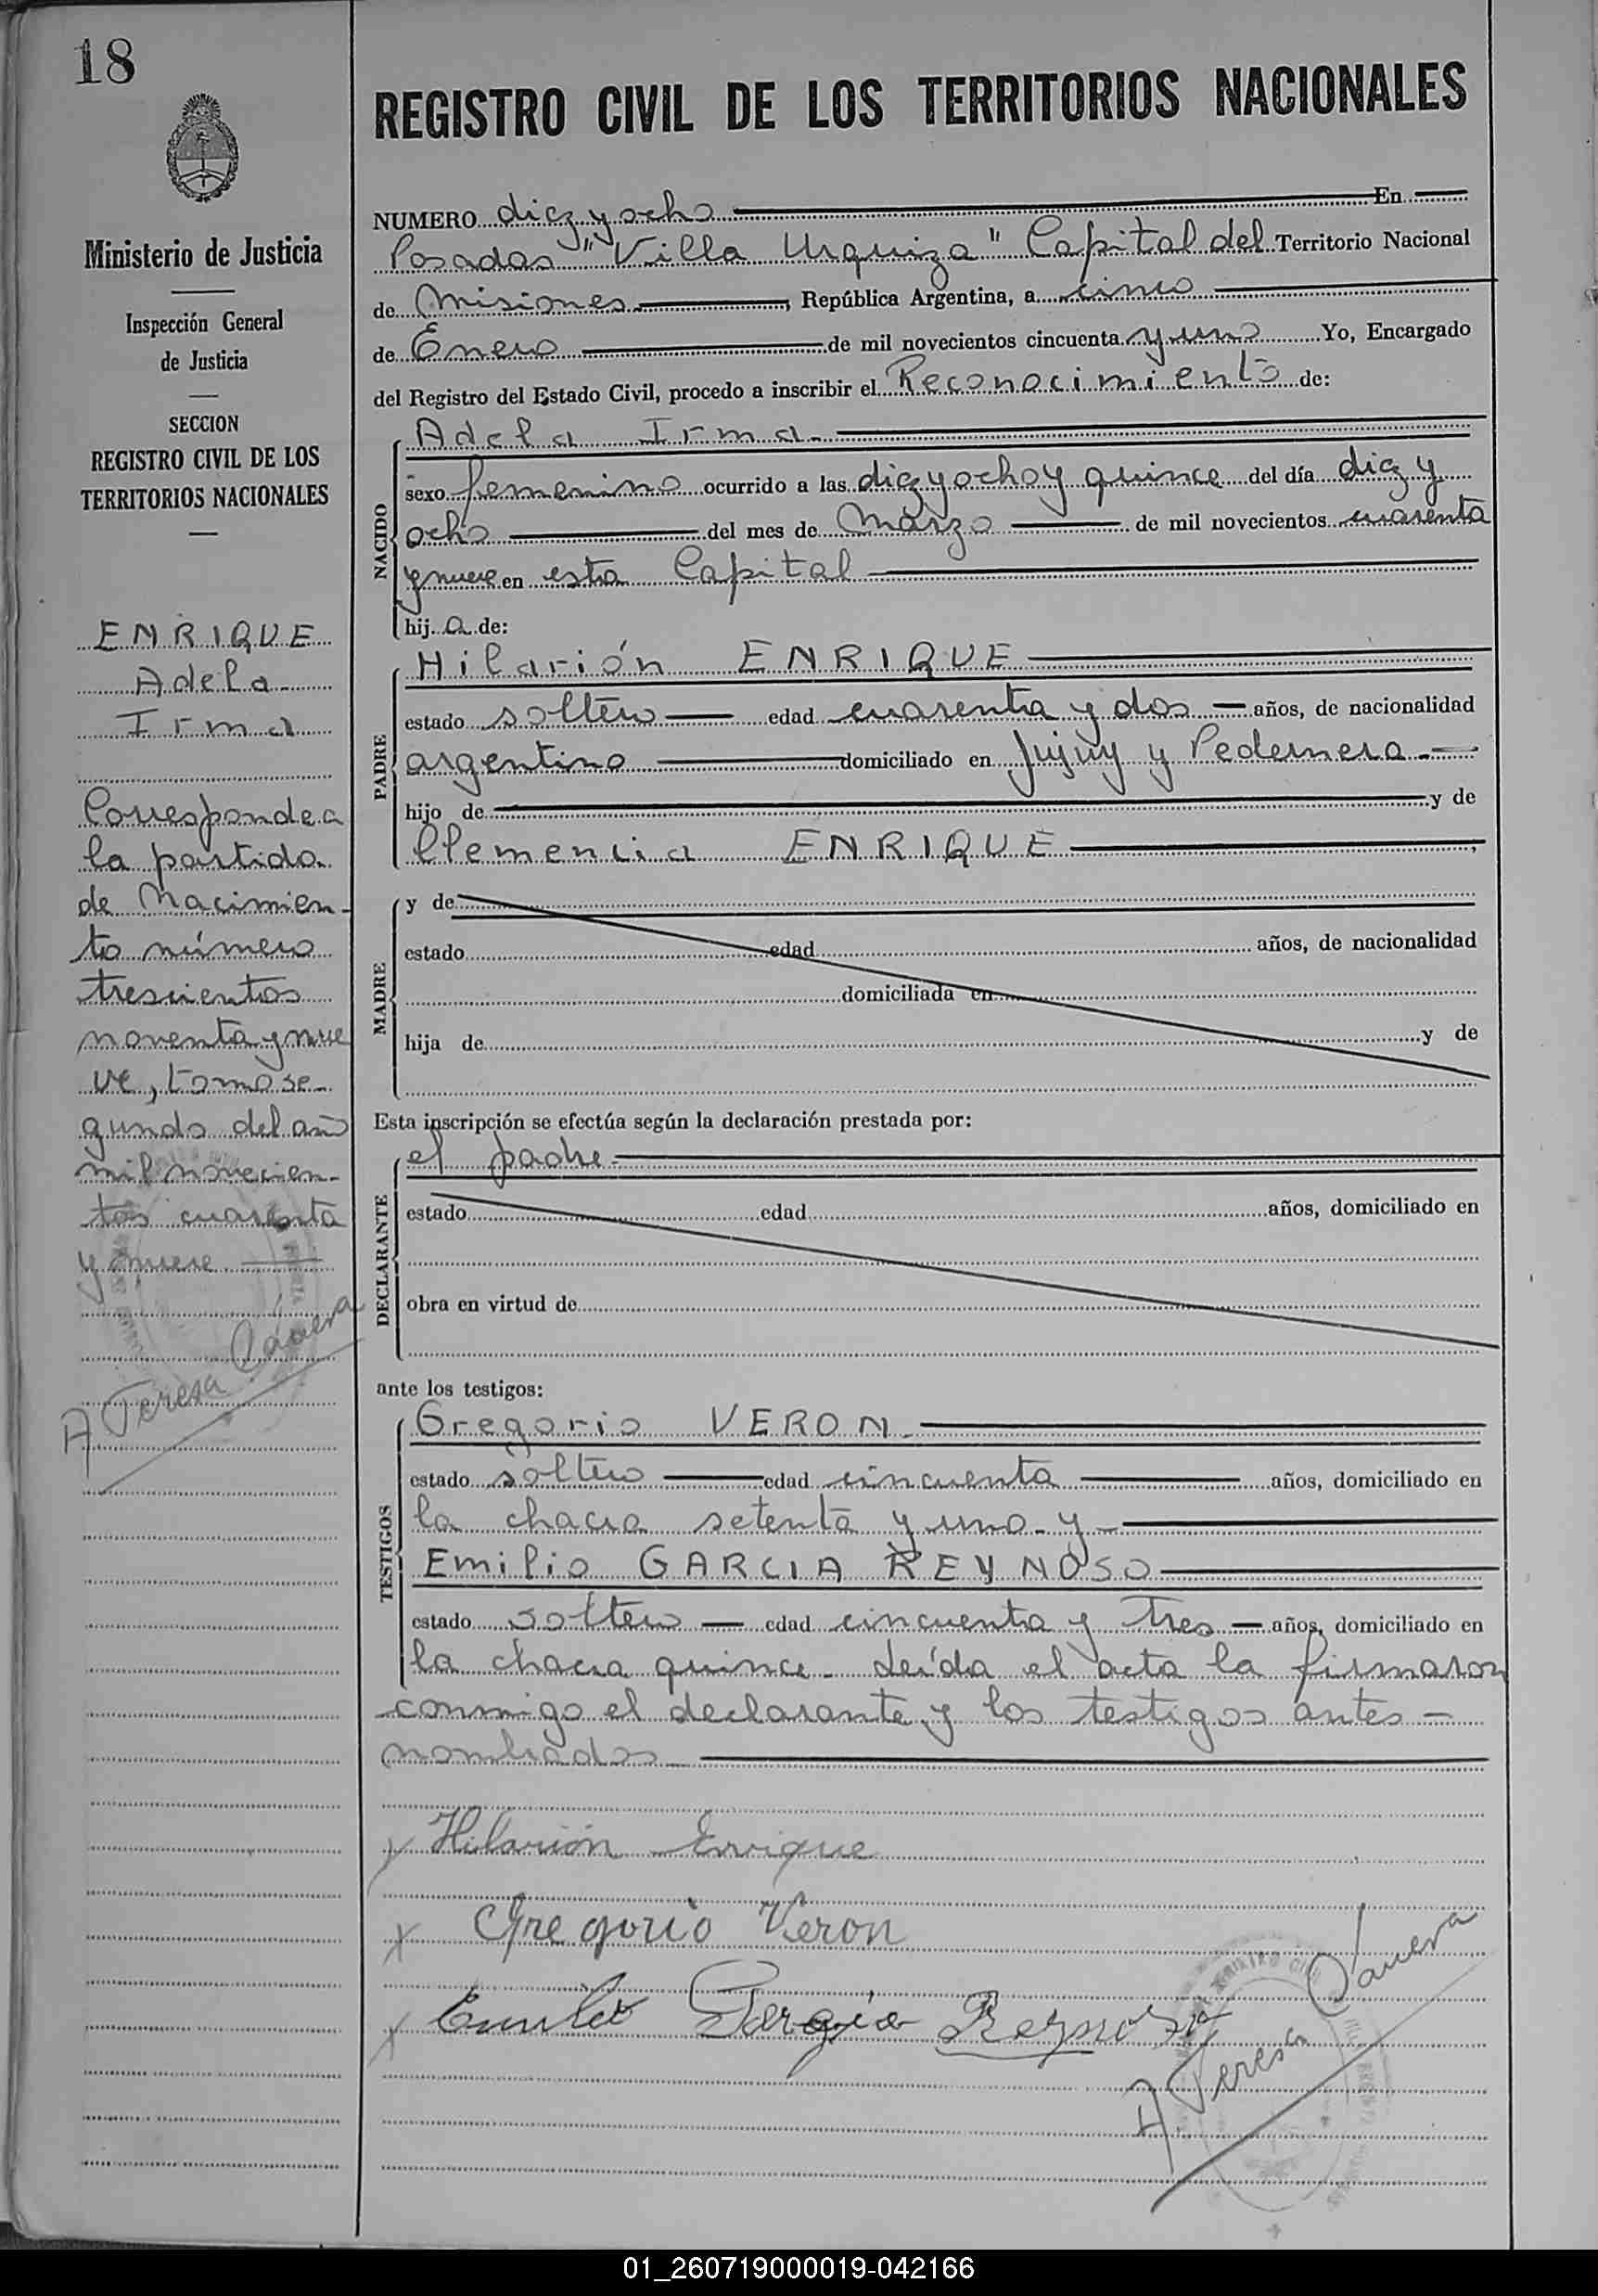 18
Ministerio de Justicia
Inspección General
de Justicia
SECCION
REGISTRO CIVIL DE LOS
TERRITORIOS NACIONALES
ENRIQUE
Adela
Irma
Corresponde a
la partida
de Nacimien-
to número
trescientos
noventa y nue
ve, tomo se-
gundo del año
mil novecien-
tos cuarenta
y nueve.
REGISTRO CIVIL DE LOS TERRITORIOS NACIONALES
NUMERO diez y ocho En
Posadas "Villa Urquiza" Capital del Territorio Nacional
de Misiones, República Argentina, a cinco
de Enero de mil novecientos cincuenta y uno Yo, Encargado
del Registro del Estado Civil, procedo a inscribir el Reconocimiento de:
NACIDO
Adela Irma
sexo femenino ocurrido a las diez y ocho y quince del día diez y
ocho del mes de Marzo de mil novecientos cuarenta
y nueve en esta Capital
hij a de:
PADRE
Hilarión ENRIQUE
estado soltero edad cuarenta y dos años, de nacionalidad
argentino domiciliado en Jujuy y Pedernera
hijo de y de
Clemencia ENRIQUE,
MADRE
y de
estado edad años, de nacionalidad
domiciliada en
hija de y de
Esta inscripción se efectúa según la declaración prestada por:
DECLARANTE
el padre
estado edad años, domiciliado en
obra en virtud de
ante los testigos:
TESTIGOS
Gregorio VERON
estado soltero edad cincuenta años, domiciliado en
la chacra setenta y uno - y
Emilio GARCIA REYNOSO
estado soltero edad cincuenta y tres años, domiciliado en
la chacra quince - Leída el acta la firmaron
conmigo el declarante y los testigos antes
nombrados
Hilarión Enrique
Gregorio Veron
Emilio Garcia Reynoso
01_260719000019-042166